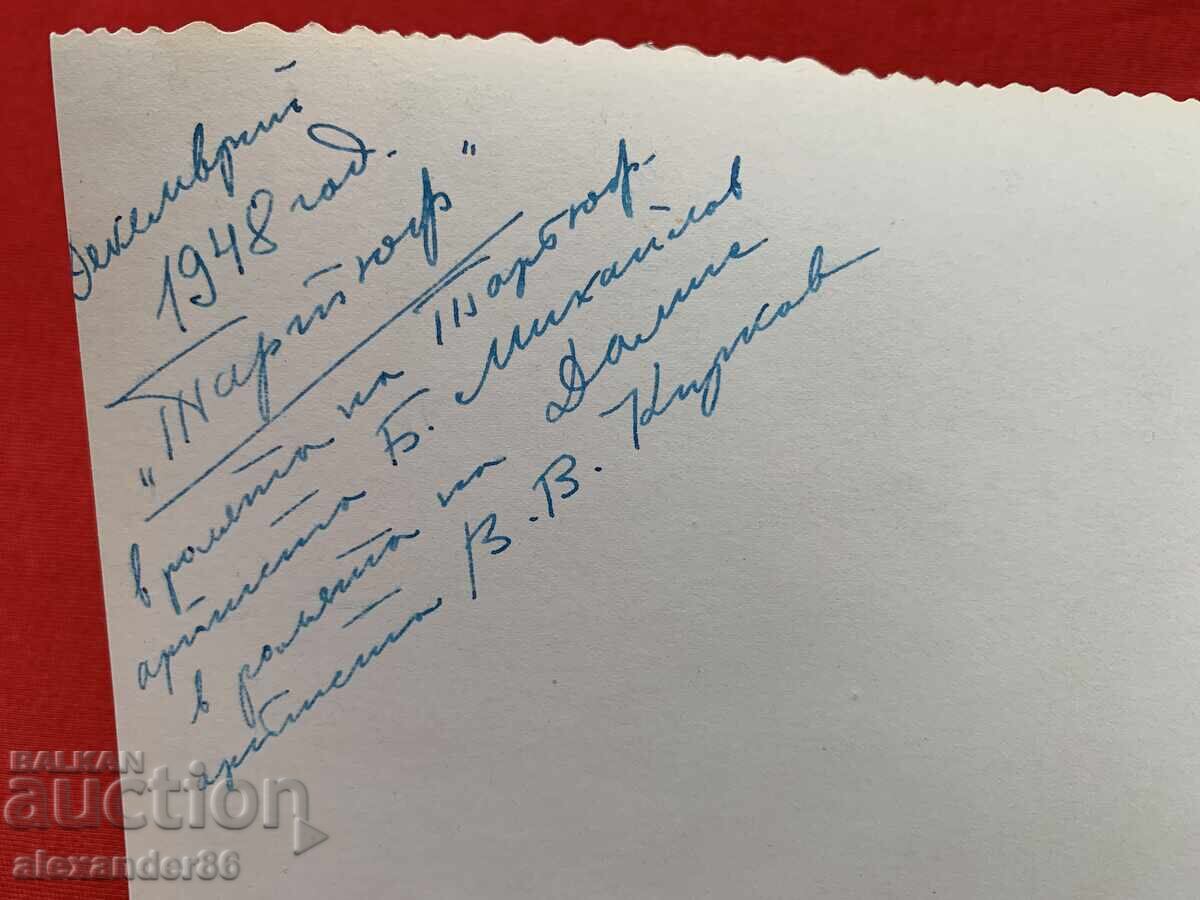 Декемврий
1948 год.
„Тартюф"
в ролята на Тартюф-
артиста Б. Михайлов
в ролята на Дамис
артиста В. В. Кирков
BALKAN
auction
alexander86